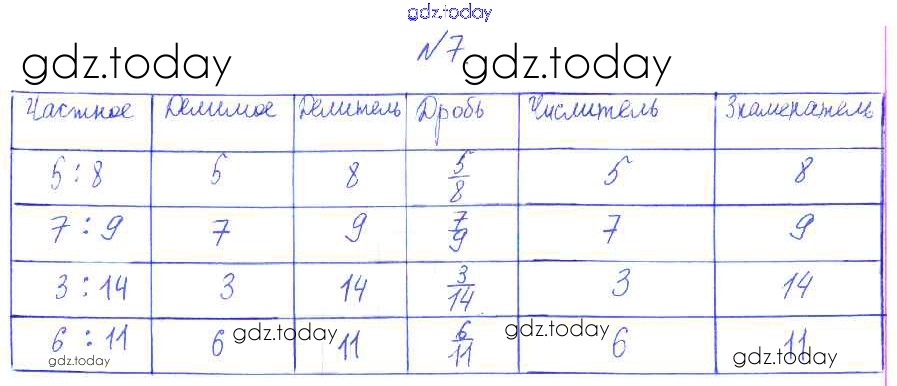 gdz.today
№7
gdz.today gdz.today
Частное Делимое Делитель Дробь Числитель Знаменатель
5 : 8 5 8 5/8 5 8
7 : 9 7 9 7/9 7 9
3 : 14 3 14 3/14 3 14
6 : 11 6 11 6/11 6 11
gdz.today gdz.today gdz.today gdz.today